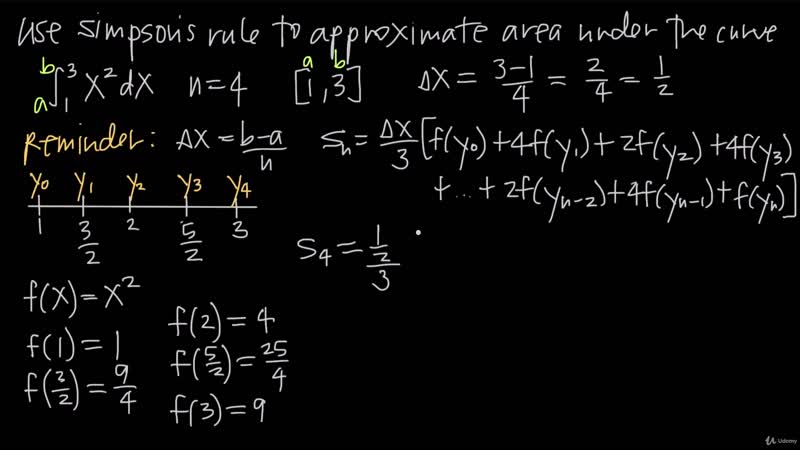 use simpson's rule to approximate area under the curve
b a ∫₁³ x² dx n=4 a b [1,3] Δx = 3-1/4 = 2/4 = 1/2
Reminder: Δx = b-a/n Sn = Δx/3 [f(y0)+4f(y1)+2f(y2)+4f(y3)
+...+2f(yn-2)+4f(yn-1)+f(yn)]
y0 y1 y2 y3 y4
1 3/2 2 5/2 3
S4 = 1/2/3
f(x)=x²
f(1)=1
f(3/2)=9/4
f(2)=4
f(5/2)=25/4
f(3)=9
Udemy